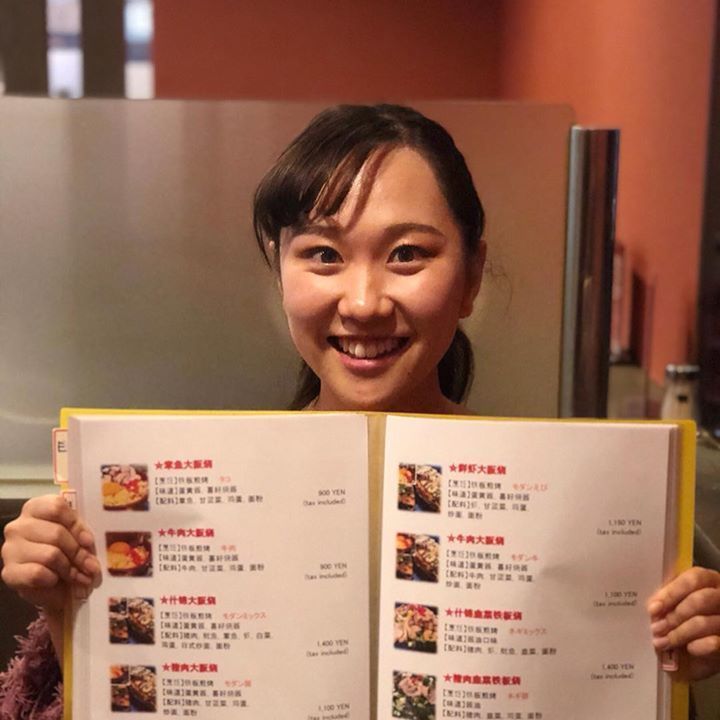 ★章鱼大阪烧
【烹饪】铁板煎烤 タコ
【味道】蛋黄酱、喜好烧酱
【配料】章鱼, 甘蓝菜, 鸡蛋, 面粉
900 YEN
(tax included)
★牛肉大阪烧
【烹饪】铁板煎烤 牛肉
【味道】蛋黄酱、喜好烧酱
【配料】牛肉, 甘蓝菜, 鸡蛋, 面粉
900 YEN
(tax included)
★什锦大阪烧
【烹饪】铁板煎烤 モダンミックス
【味道】蛋黄酱、喜好烧酱
【配料】猪肉, 鱿鱼, 章鱼, 虾, 白菜,
鸡蛋, 日式炒面, 面粉
1,400 YEN
(tax included)
★猪肉大阪烧
【烹饪】铁板煎烤 モダン
【味道】蛋黄酱、喜好烧酱
【配料】猪肉, 甘蓝菜, 鸡蛋,
炒面, 面粉
1,100 YEN
(tax included)
★鲜虾大阪烧
【烹饪】铁板煎烤 モダンえび
【味道】蛋黄酱、喜好烧酱
【配料】虾, 甘蓝菜, 鸡蛋,
炒面, 面粉
(tax included)
★牛肉大阪烧
【烹饪】铁板煎烤 モダン牛
【味道】蛋黄酱、喜好烧酱
【配料】牛肉, 甘蓝菜, 鸡蛋,
炒面, 面粉
1,100 YEN
(tax included)
★什锦韭菜铁板烧
【烹饪】铁板煎烤 ネギミックス
【味道】酱油口味
【配料】猪肉, 虾, 鱿鱼, 韭菜, 面粉
1,400 YEN
(tax included)
★猪肉韭菜铁板烧
【烹饪】铁板煎烤 ネギ
【味道】酱油
【配料】猪肉, 韭菜, 面粉